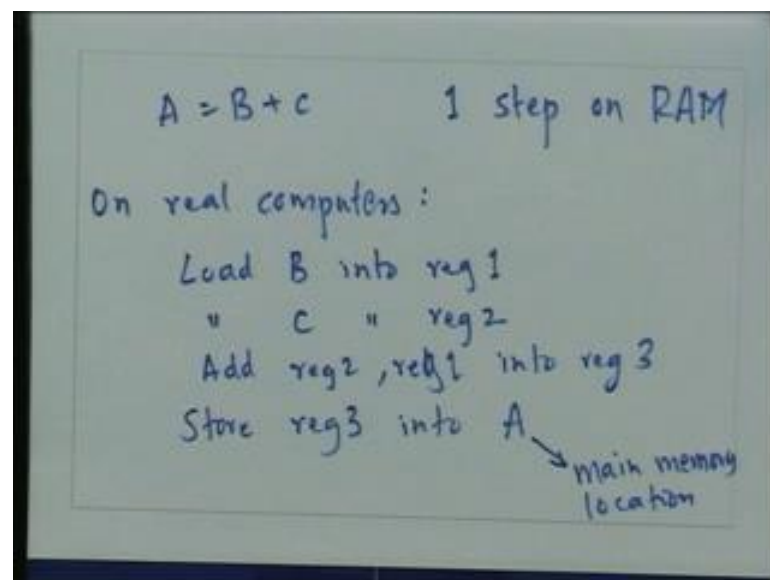 A = B + C 1 step on RAM
On real computers :
Load B into reg 1
" C " reg 2
Add reg 2 , reg 1 into reg 3
Store reg 3 into A
main memory
location